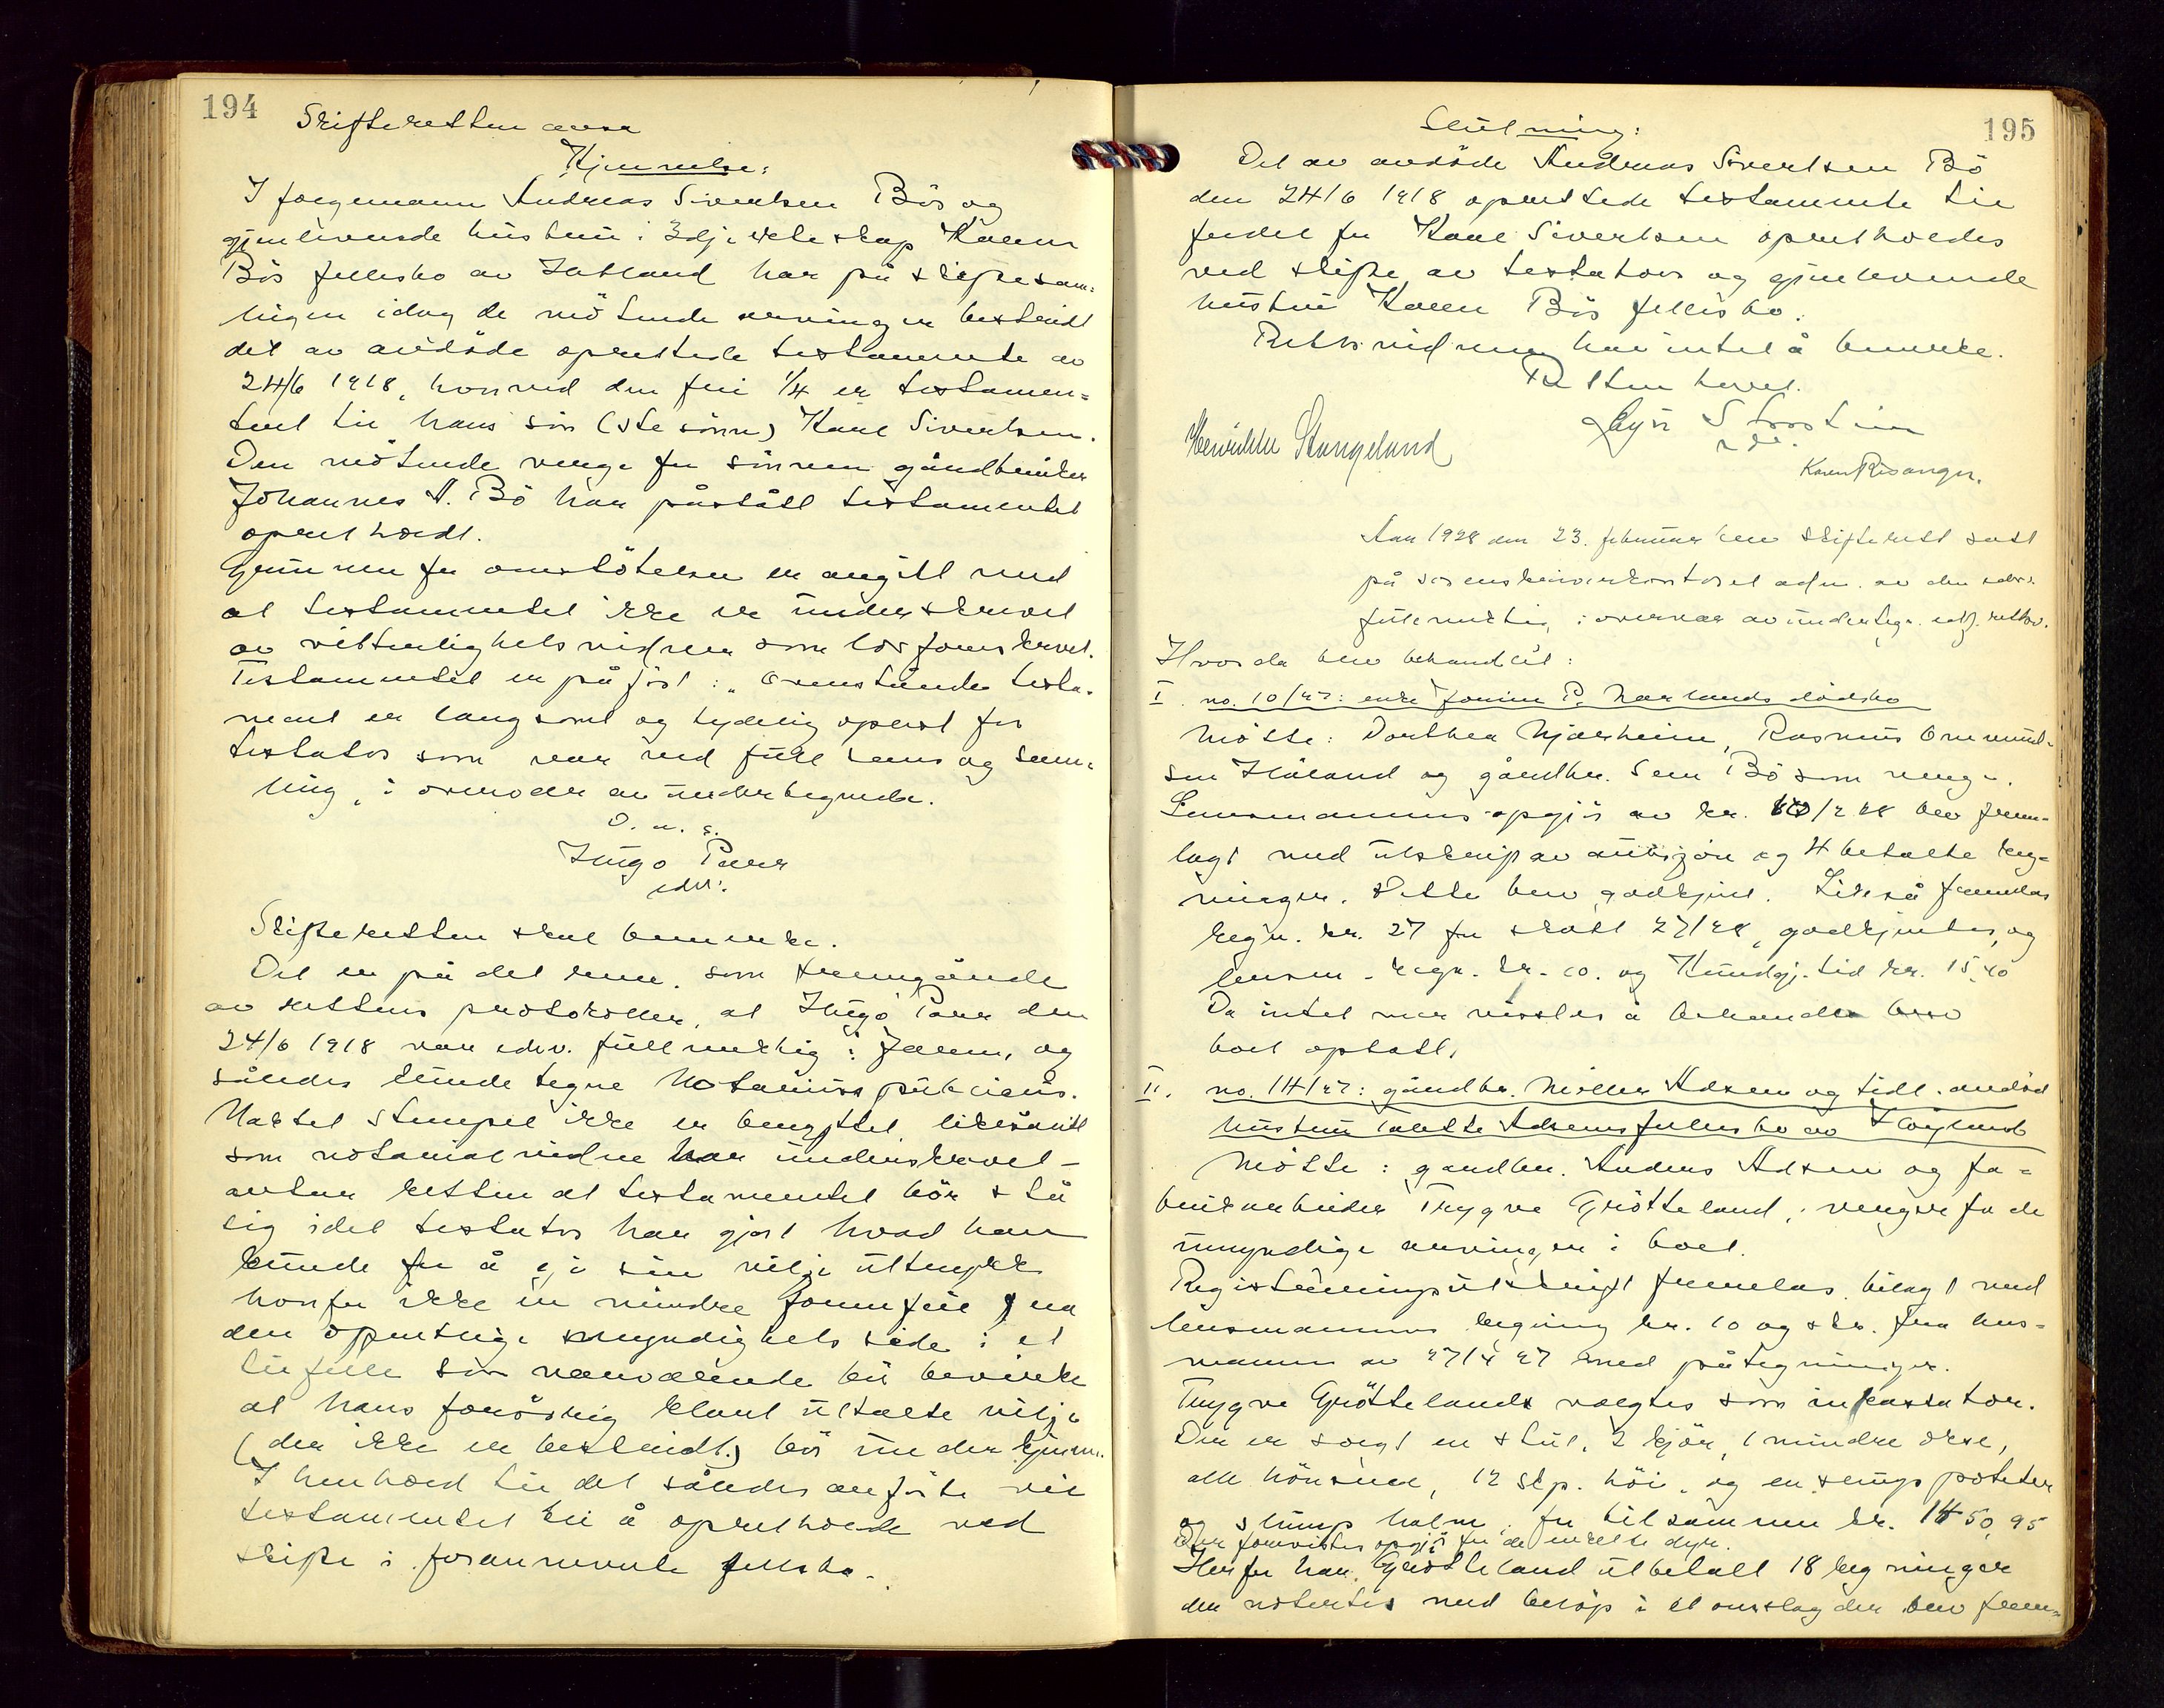 194
Skifteretten avsa
Kjennelse:
I forgemann Andreas Sivertsen Bös og
gjenlevende hustru i 3dje ekteskap Karen
Bös fellesbo av Jatland har på skiftesam-
lingen idag de mötende arvinger bestridt
det av avdöde oprettede testamente av
24/6 1918, hvorved den frie 1/4 er testamen-
tert til hans sön (ste sönn) Karl Sivertsen.
Den mötende verge for sönnen gårdbruker
Johannes A. Bö har påstått testamentet
oprettholdt.
Grunnen for omstötelsen er angitt med
at testamentet ikke er underskrevet
av vitterlighetsvidner som lovforeskrevet.
Testamentet er påfört: "Ovenstående testa-
ment er langsomt og tydelig oplest for
testator som var ved full sans og sam-
ling, i overvær av undertegnede.
D. u. s.
Hugo Paar
edsv.
Skifteretten skal bemerke.
Det er på det rene, som fremgående
av rettens protokoller, at Hugo Paar den
24/6 1918 var edsv. fullmektig i Jæren, og
således kunde tegne Notarius publicus.
Uaktet stempel ikke er benyttet, likesåvitt
som notarialvidne har underskrevet -
antar retten at testamentet bör stå
sig idet testator har gjort hvad han
kunde for å gi sin vilje uttrykk
hvorfor ikke en mindre formfeil fra
den offentlige myndighets side i et
tilfelle som nærværende bör bevirke
at hans forövrig klart uttalte vilje
(der ikke er bestridt) bör underkjennes.
I henhold til det således anförte vil
testamentet bli å oprettholde ved
skifte i forannevnte fellesbo.
195
Slutning:
Det av avdöde Andreas Sivertsen Bö
den 24/6 1918 oprettede testamente til
fordel for Karl Sivertsen oprettholdes
ved skifte av testators og gjenlevende
hustru Karen Bös fellesbo.
Rettsvidnene har intet å bemerke.
Retten hevet.
Henrikke Stangeland
Karen Risanger.
Aar 1928 den 23. februar blev skifterett satt
på sorenskriverkontoret adm. av den edsv.
fullmektig, i overvær av undertegn. edf. rettsv.
Hvorda blev behandlet:
I. no. 10/27: enke Jonine P. Haarlands dödsbo
Mötte: Dorthea Njærheim, Rasmus Ommund-
sen Håland og gårdbr. Sem Bö som verge.
Lensmannens opgjör av kr. 10/2 28 blev frem-
lagt med utskrift av auksjon og 4 betalte reg-
ninger. Dette blev godkjent. Likeså fremlas
regn. kr. 27 for skatt 27/28, godkjentes, og
lensm. regn. kr. 10. og Kundgj. tid kr. 15,40
Da intet mer visstes å behandle blev
boet opsatt.
II. no. 14/27: gårdbr. Möller Adsen og tidl. avdöd
hustru Adsens fellesbo av
Mötte: gardbr. Anders Adsen og fa-
brikarbeider Trygve Grötteland, verger for de
umyndige arvinger i boet.
Registreringsutskrift fremlas, bilagt med
lensmannens regning kr. 10 og skr. fra lens-
mannen av 27/4 27 med påtegninger.
Trygve Gröttelands valgtes som inkassator.
Der er solgt en stut, 2 kjör, 1 mindre okse,
alle hönsene, 12 skp. höi, og en slump poteter
og slump halm, for tilsammen kr. 1450,95
Der forevistes opgjör for de enkelte dyr.
Herfor har Grötteland utbetalt 18 regninger
der notertes med belöp i et omslag der blev frem-